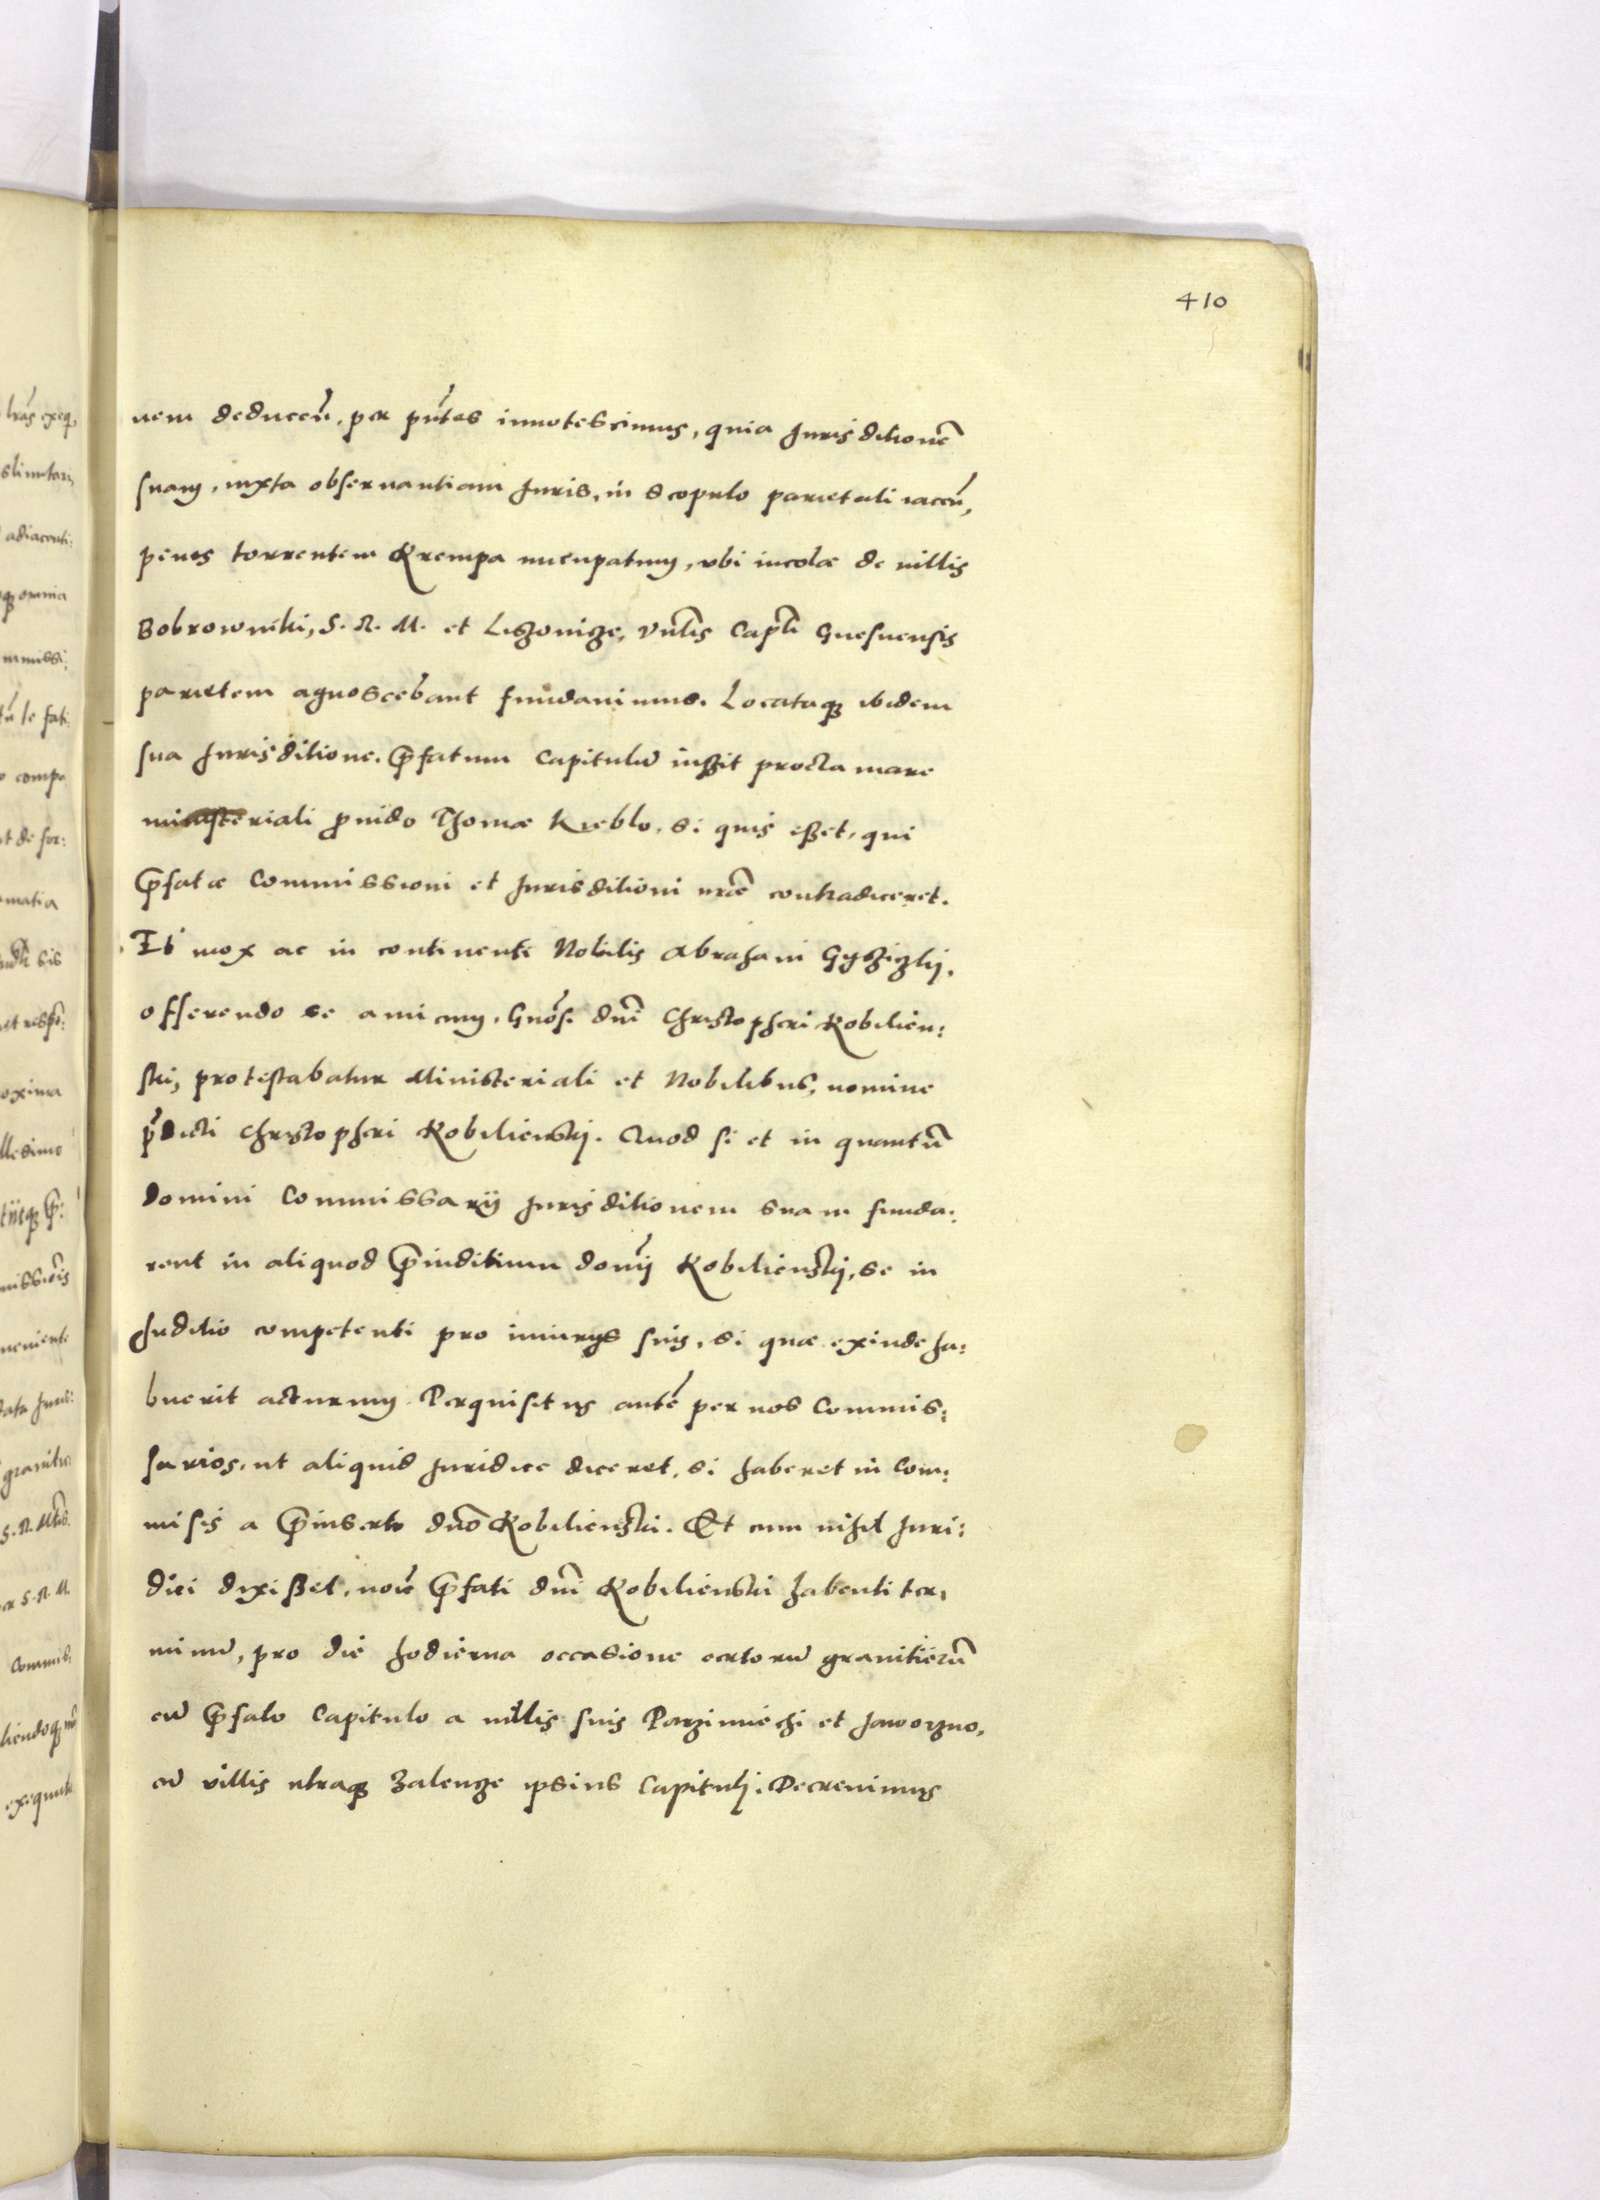 410
nem deduceñ. per pñtes innotescimus, quia Jurisditionẽ
suam, iuxta obseruantiam Juris, in scopulo parietali iaceñ,
penes torrentem Krempa nucupatum, vbi incolæ de uillis
Bobrowniki, S. R. M. et Liszonisze, Vnlis Capli Gnesnensis
parietem agnoscebant fundauimus. Locataq3 ibidem
sua Jurisditione. Pfatum Capitulũ iussit proclamare
ministeriali Prouido Thomæ Kieblo, si quis esset, qui
Pfatæ Commissioni et Jurisditioni nrãe contradiceret.
Et mox ac in continenti Nobilis Abraham
offerendo se amicum, Gnõsi dñi Christopheri Kobilien:
ski, protestabatur Ministeriali et Nobilibus, nomine
pdicti Christopheri Kobilienskij. Quod si et in quantũ
Domini Commissarij Jurisditionem suam funda:
rent in aliquod Piuditium domĩ Kobilienskij, se in
Juditio competenti pro iniurijs suis, si quæ exinde ha:
buerit acturum. Perquisitus autẽ per nos Commis:
sarios, ut aliquid Juridice diceret, si haberet in Com:
misis a Pinserto dño Kobilienski. Et cum nihil Juri:
dici dixisset, noïe Pfati dñi Kobilienski habenti ter:
minũ, pro die hodierna occasione certorũ granitierũ
cũ Pfato Capitulo a uillis suis Parzimiechi et Jaworzno,
cũ villis utraq3 Zalenze ipsius Capituli. Decreuimus